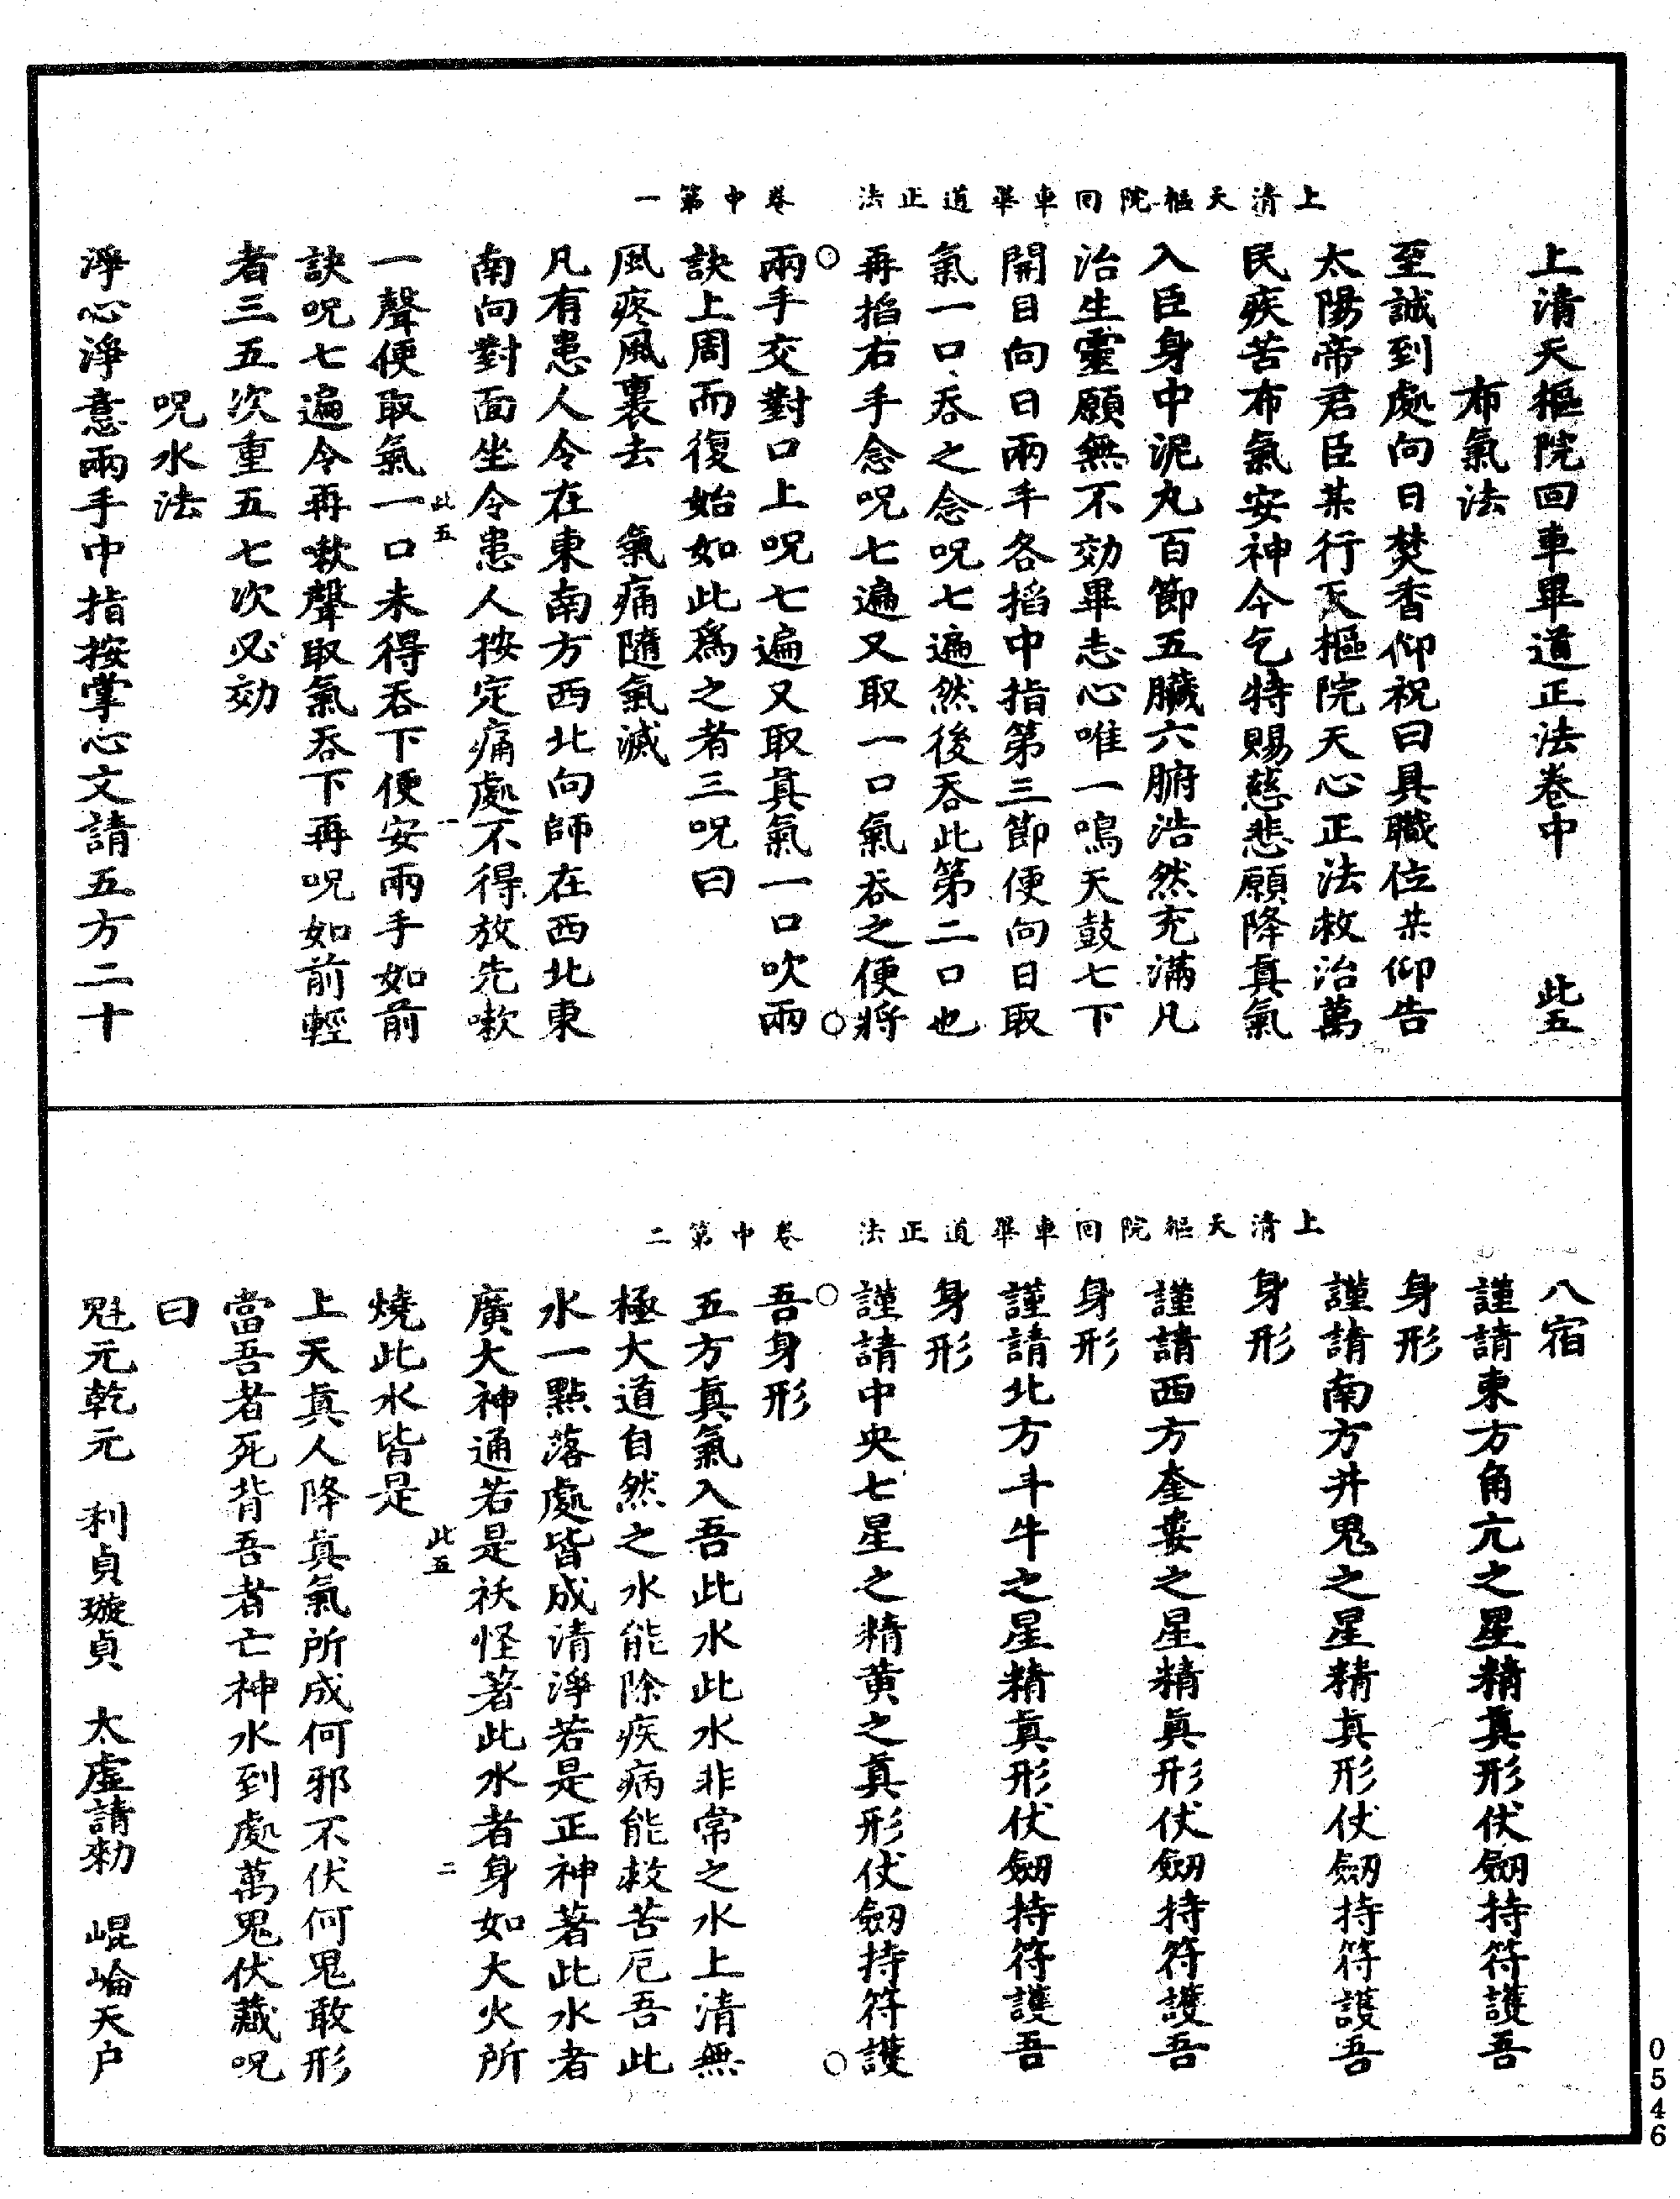 上清天樞院回車畢道正法　卷中第一
上清天樞院回車畢道正法卷中　此五
布氣法
至誠到處向日焚香仰祝曰具職位某仰告
太陽帝君臣某行天樞院天心正法救治萬
民疾苦布氣安神今乞特賜慈悲願降真氣
入臣身中泥丸百節五臟六腑浩然充滿凡
治生靈願無不効畢志心唯一鳴天鼓七下
開目向日兩手各搯中指第三節便向日取
氣一口吞之念呪七遍然後吞此第二口也
再搯右手念呪七遍又取一口氣吞之便將
兩手交對口上呪七遍又取真氣一口吹兩
訣上周而復始如此爲之者三呪曰
風疼風裏去　氣痛隨氣滅
凡有患人令在東南方西北向師在西北東
南向對面坐令患人按定痛處不得放先嗽
此五　一
一聲便取氣一口未得吞下便安兩手如前
訣呪七遍令再嗽聲取氣吞下再呪如前輕
者三五次重五七次必効
呪水法
淨心淨意兩手中指按掌心文請五方二十
上清天樞院回車畢道正法　卷中第二
八宿
謹請東方角亢之星精真形伏劒持符護吾
身形
謹請南方井鬼之星精真形伏劒持符護吾
身形
謹請西方奎婁之星精真形伏劒持符護吾
身形
謹請北方斗牛之星精真形伏劒持符護吾
身形
謹請中央七星之精黄之真形伏劒持符護
吾身形
五方真氣入吾此水此水非常之水上清無
極大道自然之水能除疾病能救苦厄吾此
水一點落處皆成清淨若是正神著此水者
廣大神通若是祅怪著此水者身如大火所
此五　二
燒此水皆是
上天真人降真氣所成何邪不伏何鬼敢形
當吾者死背吾者亡神水到處萬鬼伏藏呪
曰
魁元乾元　利貞璇貞　太虛請勑　崐崘天户
0546